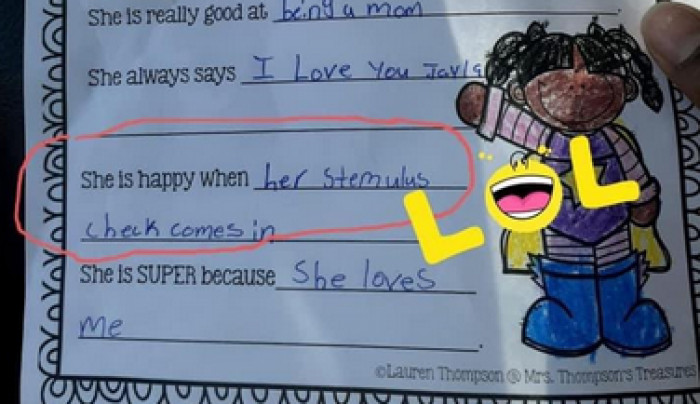 She is really good at being a mom.
She always says I Love You Jayla
She is happy when her stemulus
check comes in
LOL
She is SUPER because She loves
me.
©Lauren Thompson @ Mrs. Thompson's Treasures